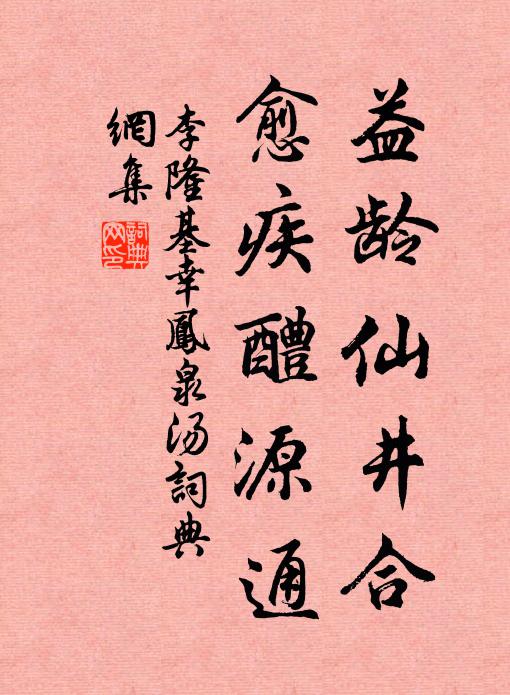 益龄仙井合
愈疾醴源通
李隆基幸鳳泉汤詞典
網集
詞典
网印